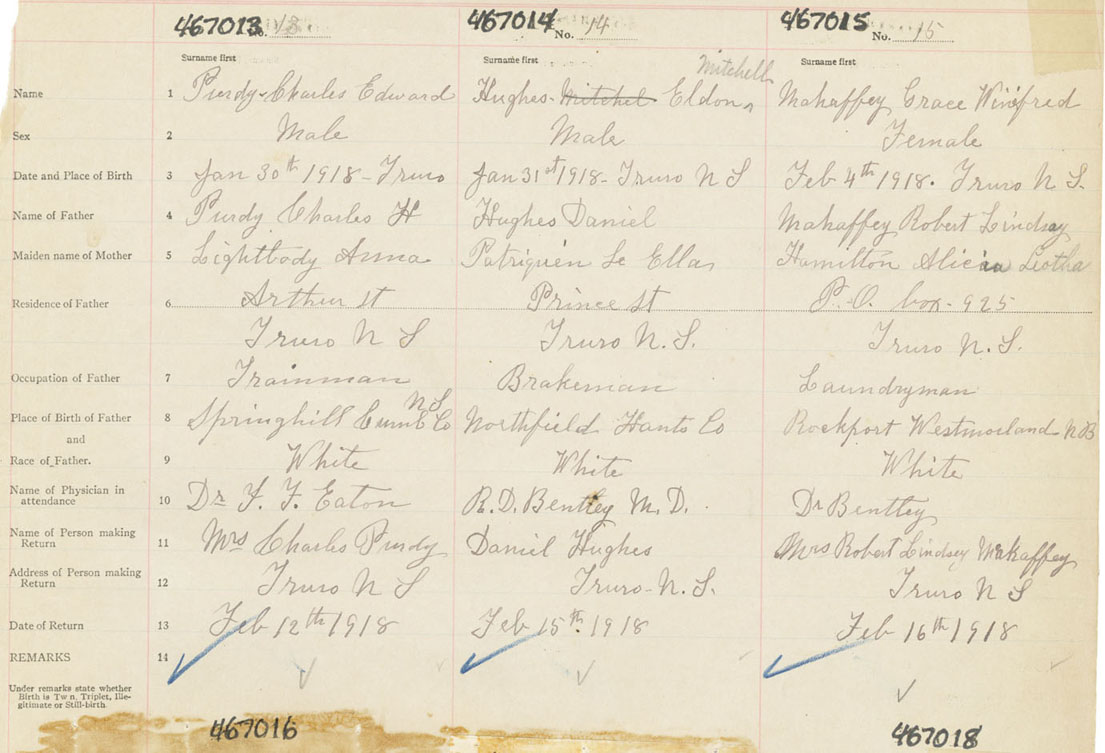 467013 No. 13 467014 No. 14 467015 No. 15
Surname first Surname first Mitchell Surname first
Name 1 Purdy-Charles Edward Hughes-Mitchel Eldon Mahaffey Grace Winifred
Sex 2 Male Male Female
Date and Place of Birth 3 Jan 30th 1918-Truro Jan 31st 1918-Truro N S Feb 4th 1918. Truro N S.
Name of Father 4 Purdy Charles H Hughes Daniel Mahaffey Robert Lindsay
Maiden name of Mother 5 Lightbody Anna Patriquin Le Ella Hamilton Leotha
Residence of Father 6 Arthur st Prince St P.O. box-925
Truro N S Truro N.S. Truro N.S.
Occupation of Father 7 Trainman Brakeman Laundryman
N.S
Place of Birth of Father 8 Springhill Cumb Co Northfield Hants Co Rockport Westmorland N.B
and
Race of Father. 9 White White White
Name of Physician in
attendance 10 Dr F. F. Eaton R.D. Bentley M.D. Dr Bentley
Name of Person making
Return 11 Mrs Charles Purdy Daniel Hughes Mrs Robert Lindsey Mahaffey
Address of Person making
Return 12 Truro N S Truro-N.S. Truro N S
Date of Return 13 Feb 12th 1918 Feb 15th 1918 Feb 16th 1918
REMARKS 14
Under remarks state whether
Birth is Tw n. Triplet, Ille-
gitimate or Still-birth.
467016 467018